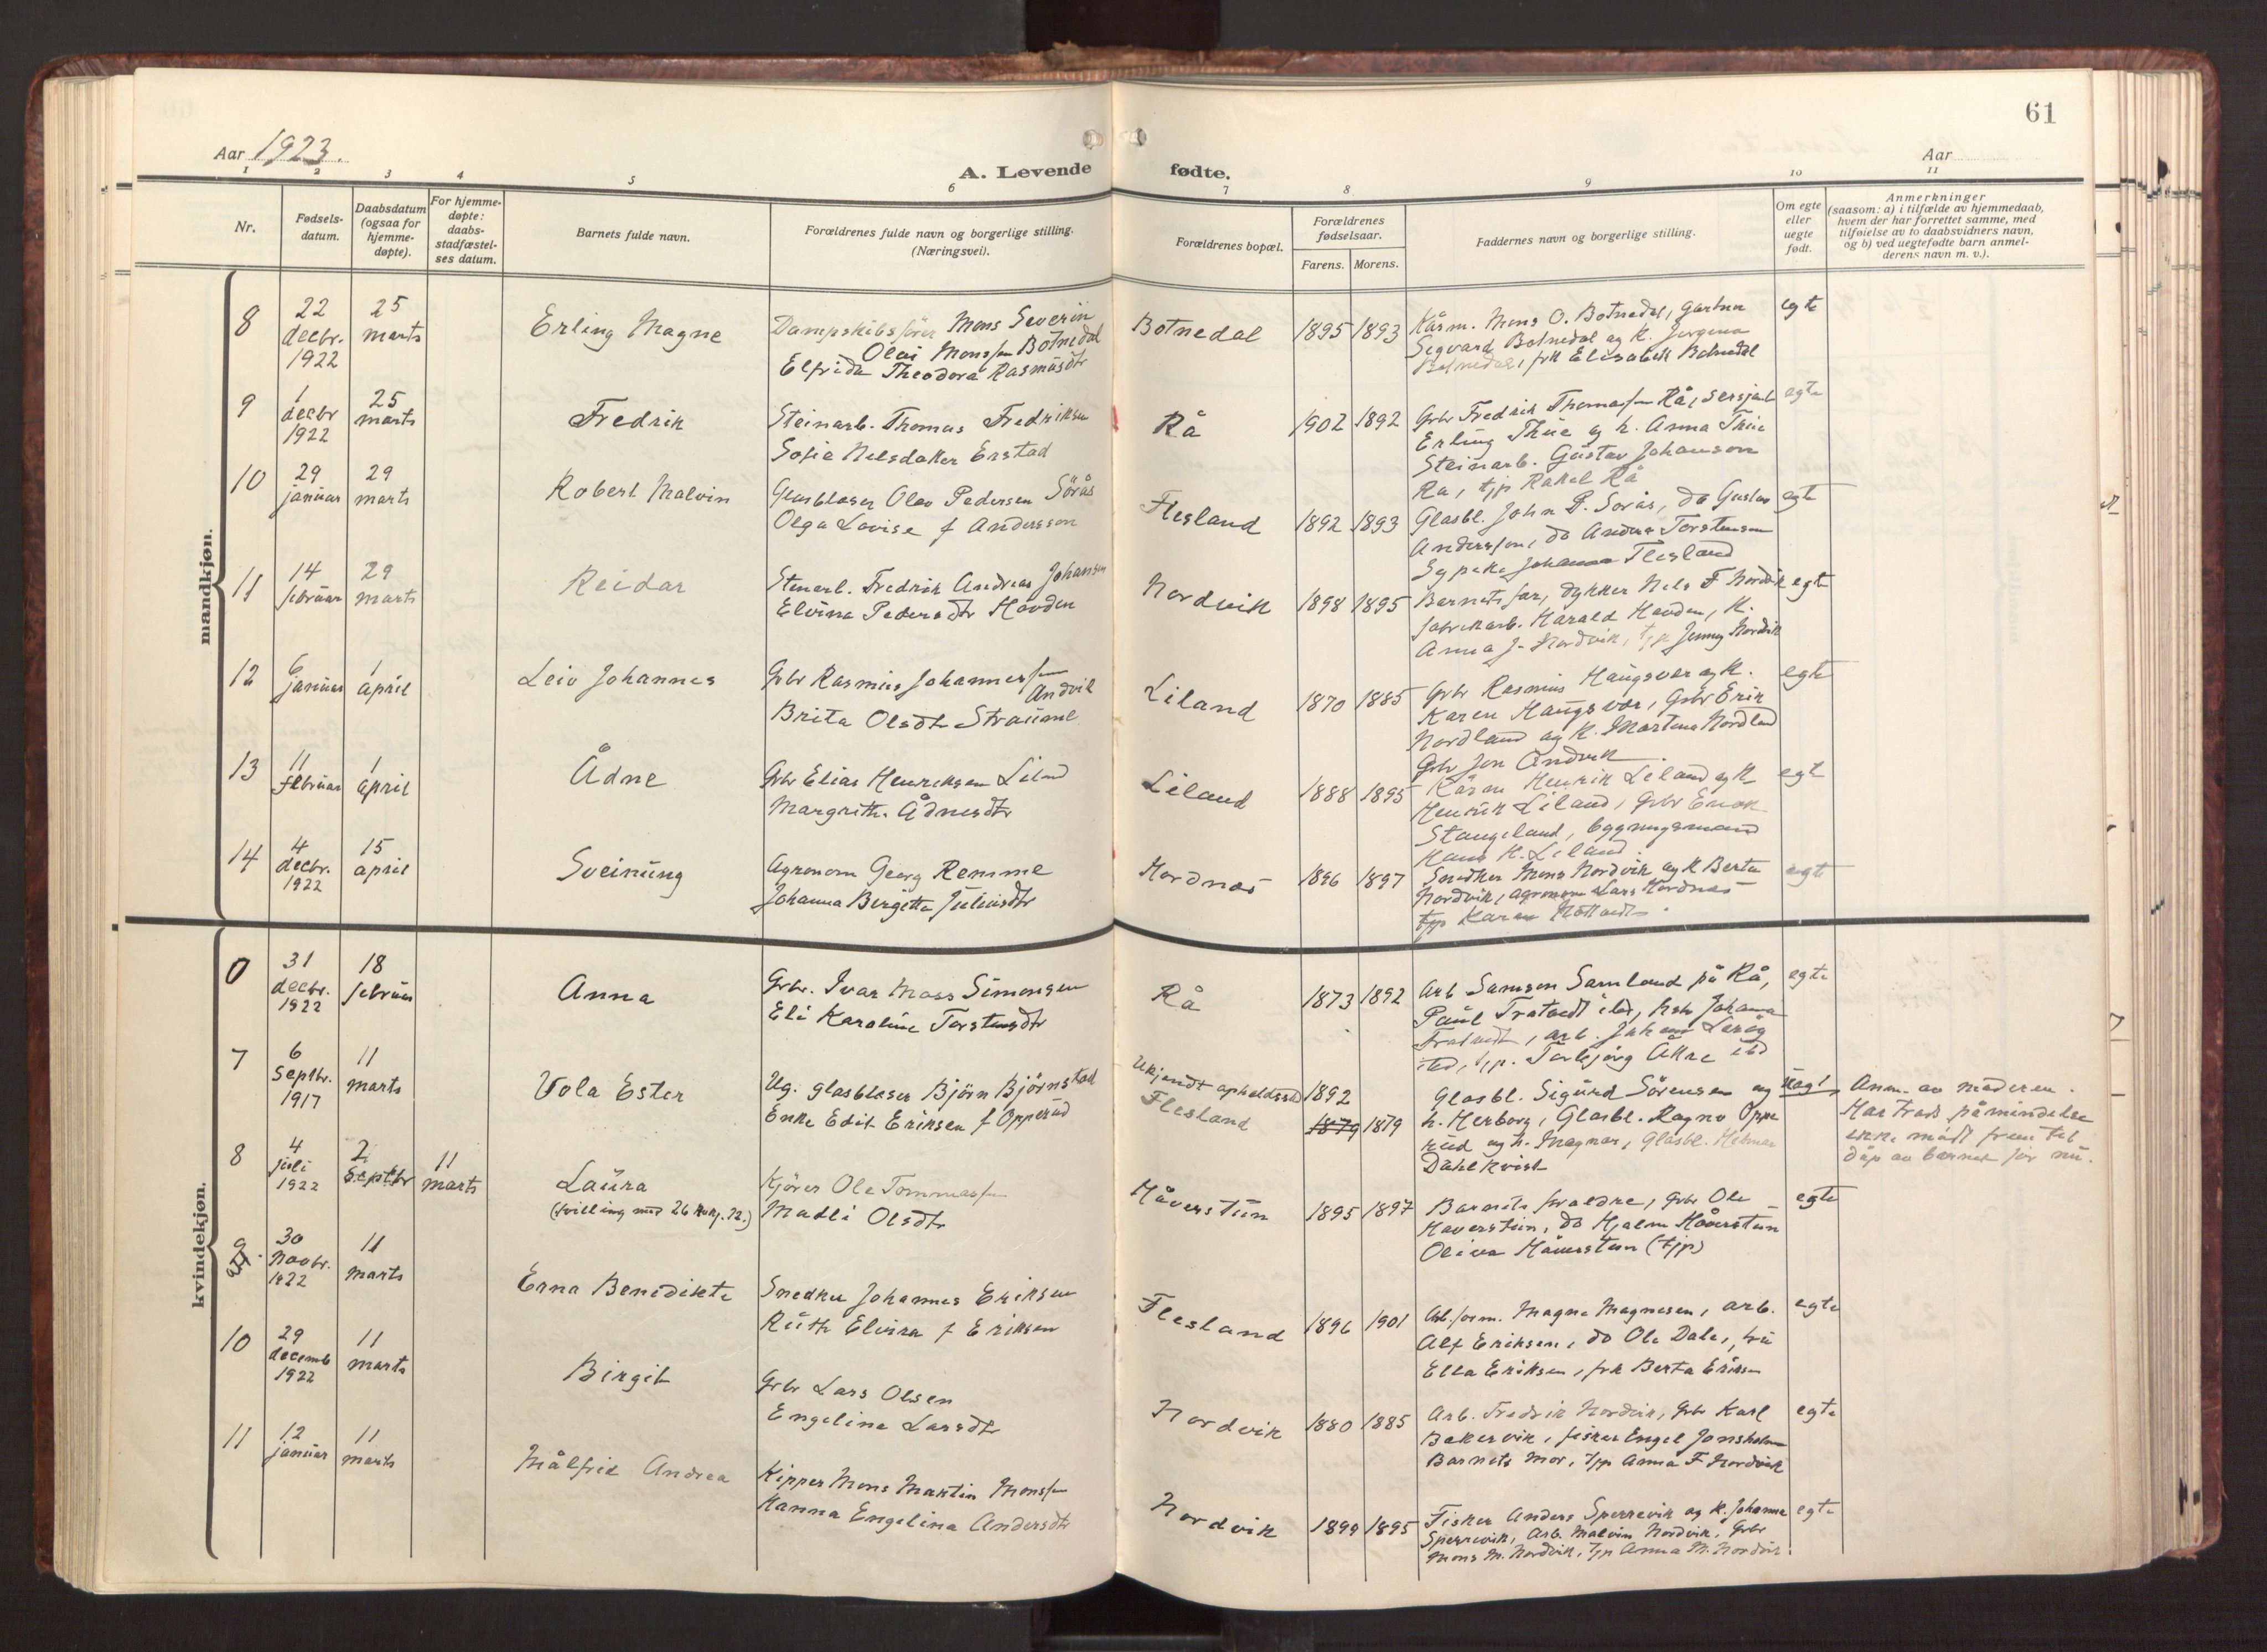 61
Aar 1923.
A. Levende fødte.
Aar
1 2 3 4 5 6 7 8 9 10 11
Nr.
Fødsels-
datum.
Daabsdatum
(ogsaa for
hjemme-
døpte).
For hjemme-
døpte:
daabs-
stadfæstel-
ses datum.
Barnets fulde navn.
Forældrenes fulde navn og borgerlige stilling.
(Næringsvei).
Forældrenes bopæl.
Forældrenes
fødselsaar.
Farens. Morens.
Faddernes navn og borgerlige stilling.
Om egte
eller
uegte
født.
Anmerkninger
(saasom: a) i tilfælde av hjemmedaab,
hvem der har forrettet samme, med
tilføielse av to daabsvidners navn,
og b) ved uegtefødte barn anmel-
derens navn m. v.).
mandkjøn.
8
22
decbr.
1922
25
marts
Erling Magne
Dampskibsfører Mons Severin
Olai Monssen Botnedal
Elfrida Theodora Rasmusdtr
Botnedal
1895 1893
Kårm. Mons O. Botnedal, Gartner
Sigvard Botnedal og k. Jørgina
Botnedal, frk Elisabeth Botnedal
egte
9
1
decbr
1922
25
marts
Fredrik
Steinarb. Thomas Fredriksen
Sofie Nelsdatter Erstad
Rå
1902 1892
Gbr Fredrik Thomassen Rå, Sersjant
Erling Thue og k. Anna Thue
Steinarb. Gustav Johanson
Rå, tjp Rakel Rå
egte
10
29
januar
29
marts
Robert Malvin
Glasblaser Olav Pedersen Sørås
Olga Lovise f Andersson
Flesland
1892 1893
Glasbl. John P. Sørås, do Gustav
Andersson, do Anders Torstensen
Sypike Johanna Flesland
egte
11
14
februar
29
marts
Reidar
Stenarb. Fredrik Andreas Johansen
Elvina Pedersdtr Hovden
Nordvik
1898 1895
Barnets far, dykker Nels F Nordvik
fabrikarb. Harald Hovden, k.
Anna J. Nordvik, tjp Jenny Nordvik
egte
12
6
januar
1
april
Leiv Johannes
Gbr Rasmus Johannessen
Andvik
Brita Olsdtr Straume
Liland
1870 1885
Gbr Rasmus Haugsvær og k.
Karen Haugsvær, Gbr Erik
Nordland og k. Martina Nordland
Gbr Jon Andvik
egte
13
11
februar
1
april
Ådne
Gbr Elias Henriksen Liland
Margrethe Ådnesdtr
Liland
1888 1895
Kårm Henrik Liland og k
Henrik Liland, Gbr Enok
Stangeland, bygningsmand
Hans H. Liland.
egte
14
4
decbr.
1922
15
april
Sveinung
Agronom Georg Remme
Johanna Birgitte Juliusdtr
Hordnæs
1896 1897
Snedker Mons Nordvik og k Berta
Nordvik, agronom Lars Hordnæs
tjp Karen
egte
kvindekjøn.
0
31
decbr.
1922
18
februar
Anna
Gbr. Ivar Moss Simonsen
Eli Karoline Torstensdtr
Rå
1873 1892
Arb Samson Samland på Rå,
Paul Tratvedt ibd, Johanna
Tratvedt, arb. Johan
ibd, tjp. Torbjørg Åkre ibd
egte
7
6
septbr.
1917
11
marts
Vola Ester
Ug. glasblaser Bjørn Bjørnstad
Enke Edit Eriksen f Opperud
Ukjendt opholdssted
Flesland
1892
1879 1879
Glasbl. Sigurd Sørensen og
h. Herborg, Glasbl. Ragnv Oppe
rud og h. Magnar, Glasbl. Helmer
Dahlkvist
uegt
Anm. av moderen.
Har trods påmindelse
ikke mødt frem til
dåp av barnet før nu.
8
4
juli
1922
2
septbr
11
marts
Laura
(tvilling med 26 22.)
Kjører Ole Tommassen
Madli Olsdtr
Håverstun
1895 1897
Barnets foraldre, Gbr Ole
Haverstun, do Hjalm Håverstun
Oliva Håverstun (tjp)
egte
9
30
novbr.
1922
11
marts
Erna Benedikte
Snedker Johannes Eriksen
Ruth Elvira f Eriksen
Flesland
1896 1901
Arb.form. Magne Magnesen, arb.
Alf Eriksen, do Ole Dale, fru
Ella Eriksen, frk Berta Eriksen
egte
10
29
decemb
1922
11
marts
Birgit
Gbr Lars Olsen
Engeline Larsdtr
Nordvik
1880 1885
Arb. Fredrik Nordvik, Gbr Karl
Bakervik, fisker Engel Jonsholm
Barnets mor, tjp Anna F Nordvik
egte
11
12
januar
11
marts
Målfrid Andrea
Kipper Mons Martin Monssen
Hanna Engelina Andersdtr
Nordvik
1899 1895
Fisker Anders Sperrevik og k. Johanna
Sperrevik, Arb. Malvin Nordvik, Gbr
Mons M. Nordvik, tjp Anna M. Nordvik.
egte